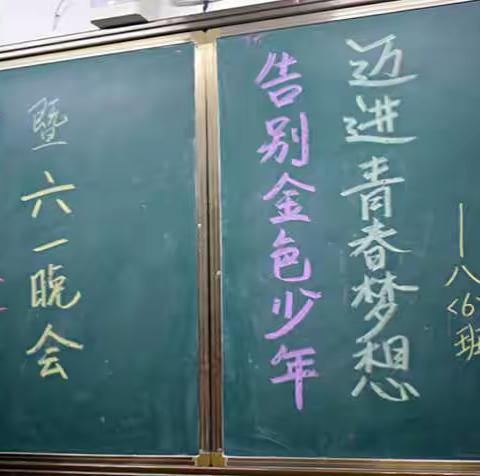 暨六一晚会
告别金色少年
迈进青春梦想
—八<6>班